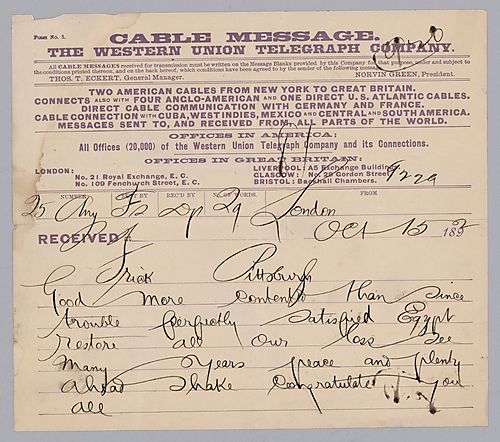 FORM No. 1.
CABLE MESSAGE.
THE WESTERN UNION TELEGRAPH COMPANY.
All CABLE MESSAGES received for transmission must be written on the Message Blanks provided by this Company for that purpose, under and subject to
the conditions printed thereon, and on the back hereof, which conditions have been agreed to by the sender of the following message.
THOS. T. ECKERT, General Manager.
NORVIN GREEN, President.
TWO AMERICAN CABLES FROM NEW YORK TO GREAT BRITAIN.
CONNECTS ALSO WITH FOUR ANGLO-AMERICAN AND ONE DIRECT U.S. ATLANTIC CABLES.
DIRECT CABLE COMMUNICATION WITH GERMANY AND FRANCE.
CABLE CONNECTION WITH CUBA, WEST INDIES, MEXICO AND CENTRAL AND SOUTH AMERICA.
MESSAGES SENT TO, AND RECEIVED FROM, ALL PARTS OF THE WORLD.
OFFICES IN AMERICA:
All Offices (20,000) of the Western Union Telegraph Company and its Connections.
OFFICES IN GREAT BRITAIN:
LONDON:
No. 21 Royal Exchange, E. C.
No. 109 Fenchurch Street, E. C.
LIVERPOOL: A5 Exchange Buildings
GLASGOW: No. 29 Gordon Street
BRISTOL: Backhall Chambers.
NUMBER SENT BY REC'D BY No. OF WORDS. FROM
25 29 London
RECEIVED Oct 15 189
Frick Pittsburgh
Good more contented than since
trouble perfectly satisfied Egypt
restore all our loss see
many years peace and plenty
ahead shake congratulate you
all